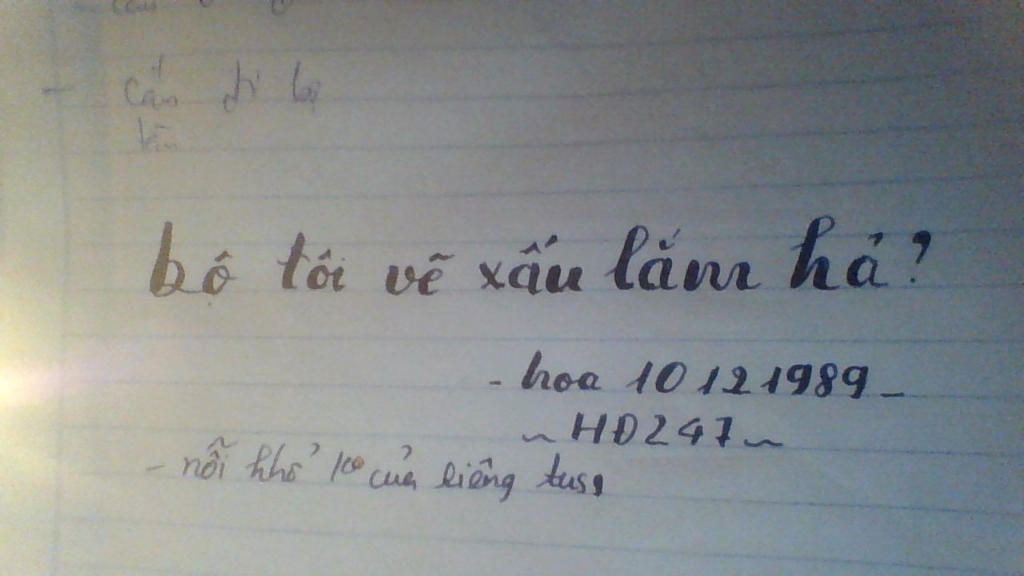 cấn đi lại
bộ tôi vẽ xấu lắm hả?
- hoa 10 12 1989 -
~ HĐ247 ~
- nỗi khổ k° của riêng tus,